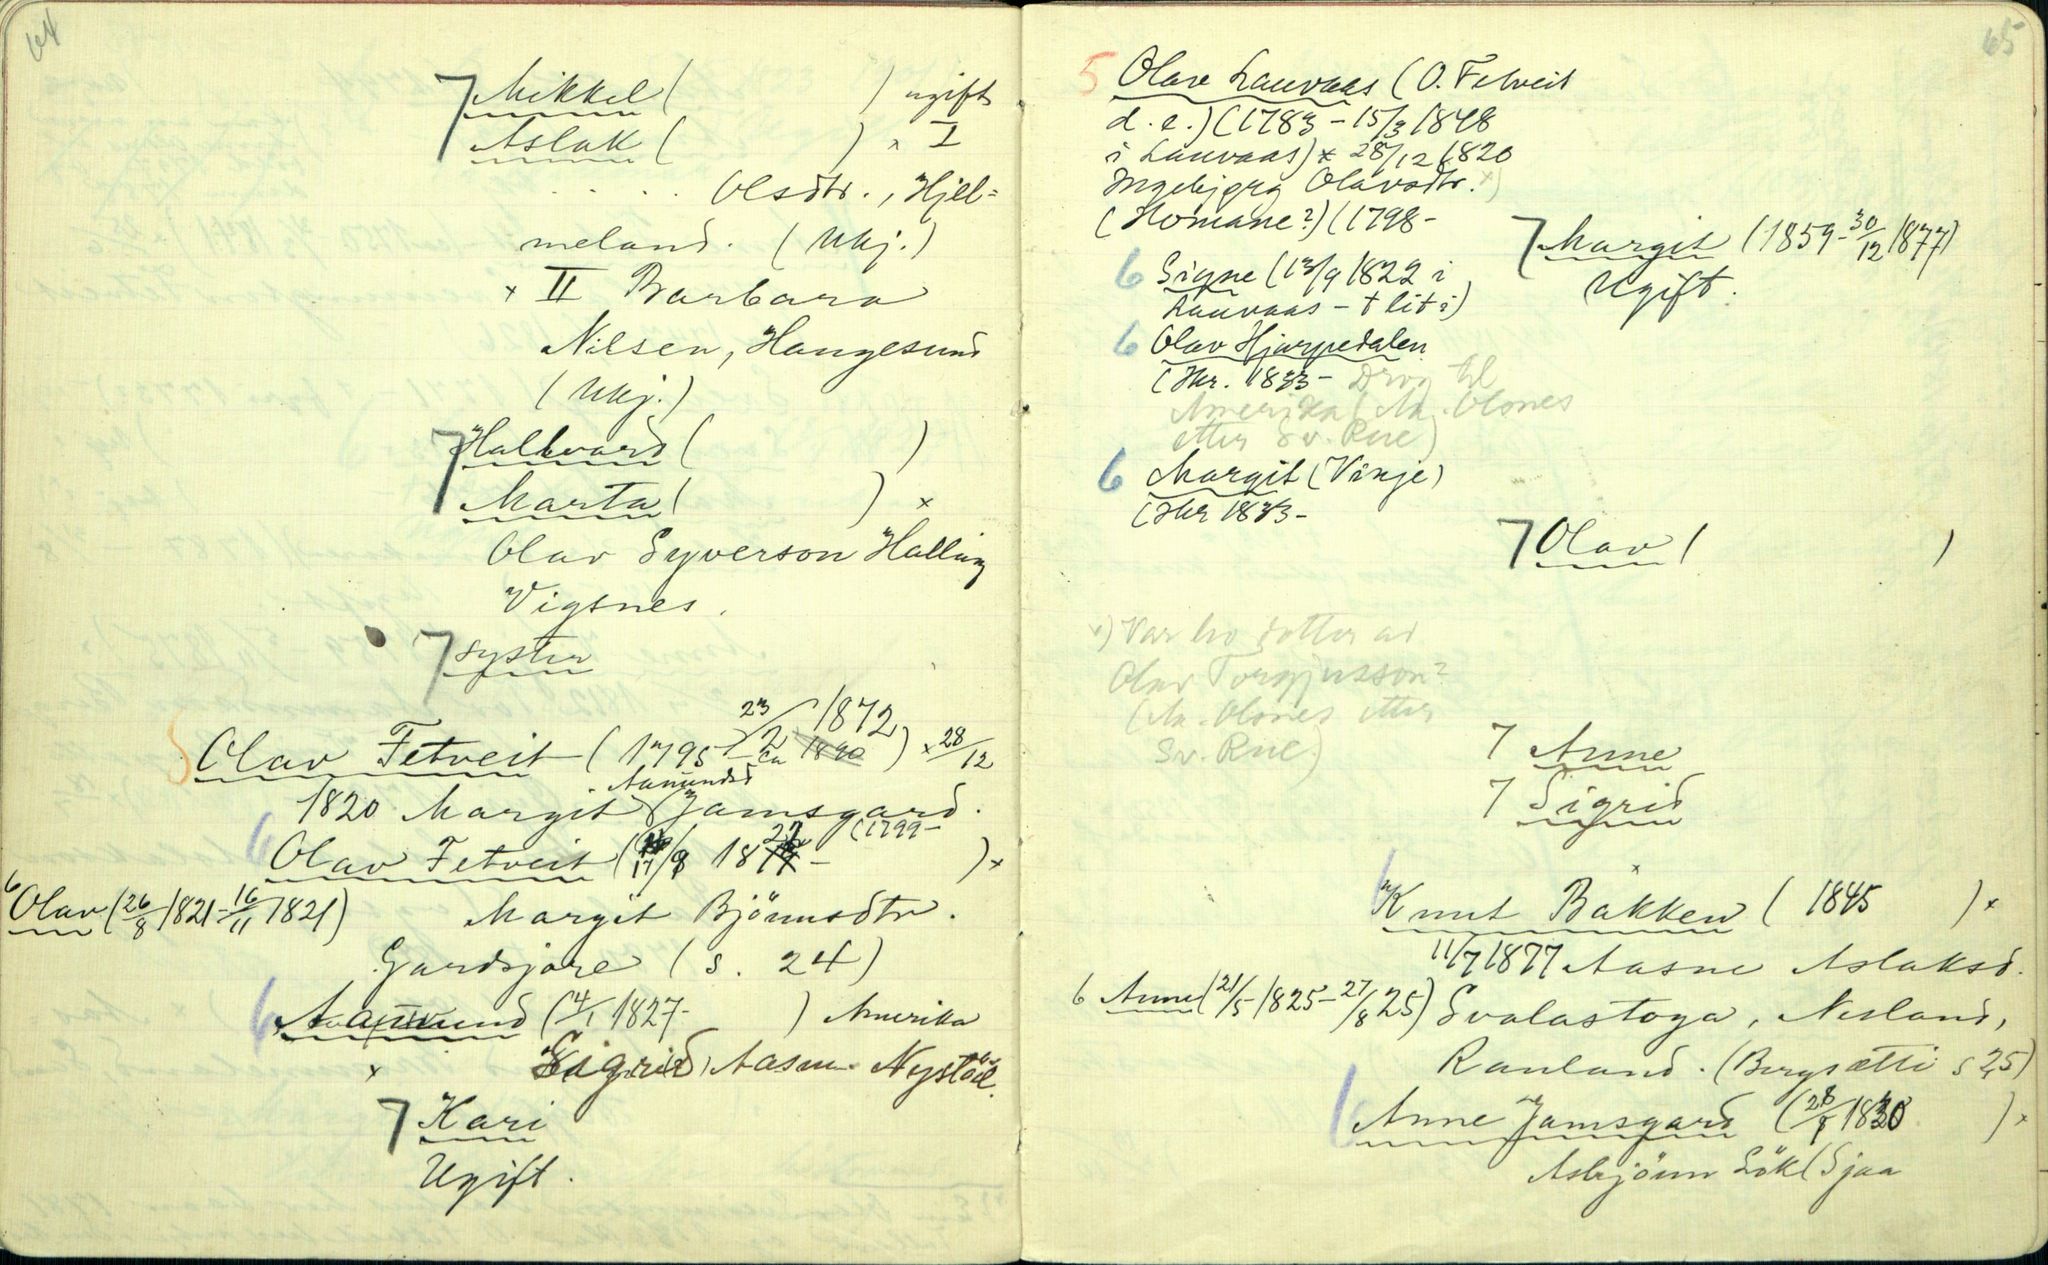 64
7 Mikkel (          ) ugift
7 Aslak (          ) × I
. . . . Olsdtr., Hjel=
meland. (Ukj.)
× II Barbara
Nilsen, Haugesund
(Ukj.)
7 Hallvard (          )
7 Marta (          ) ×
Olav Syverson Halling
Vigsnes.
7 syster
5 Olav Fetveit (1795 - 23/2 1872 ca 1890) × 28/12
Aamundsd
1820 Margit Jamsgard.
(1799-
6 Olav Fetveit (17/8 1822 -          ) ×
6 Olav (26/8 1821 - 16/11 1821)
Margit Bjönnsdtr.
Gardsjore (s. 24)
6 Aamund (4/1 1827-          ) Amerika
× Sigrid Aasm. Nystöil.
7 Kari
Ugift.
65
5 Olav Lauvaas (O. Fetveit
d. e.) (1783 - 15/3 1848
i Lauvaas) × 28/12 1820
Ingebjørg Olavsdtr. ×)
(Homane?) (1798-
7 Margit (1859 - 30/12 1877)
Ugift.
6 Signe (13/9 1822 i
Lauvaas - † liti)
6 Olav Hjarpedalen
(Kr. 1833 - Drog til
Amerika (Aa. Olsnes
etter Sv. Rue)
6 Margit (Vinje)
(Kr 1833-
7 Olav (          )
×) Var ho dotter av
Olav Torgjusson?
(Aa. Olsnes etter
Sv. Rue.)
7 Anne
7 Sigrid
6 Knut Bakken (1845          ) ×
11/7 1877 Aasne Aslaksd.
6 Anne (21/5 1825 - 27/8 25) Svalastoga, Nesland,
Rauland. (Bergsætti s 25)
6 Anne Jamsgard (28/8 1830          ) ×
Asbjönn Lök (Sjaa